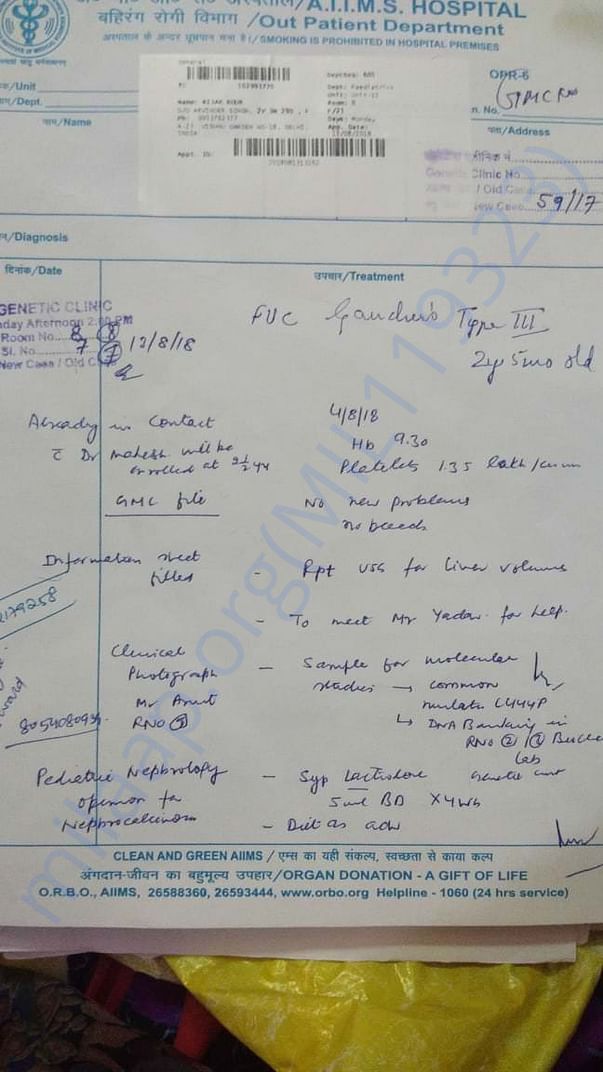 /A.I.I.M.S. HOSPITAL
बहिरंग रोगी विभाग /Out Patient Department
अस्पताल के अन्दर धूम्रपान मना है।/SMOKING IS PROHIBITED IN HOSPITAL PREMISES
/Unit
/Dept.
नाम/Name
General
Dept: Paediatrics
Room: 8
Days: Monday,
App. Date:
13/08/2018
INDIA
Appt. ID:
OPR-6
n. No.
पता/Address
Clinic No
/ Old Case
New Case 59/17
/Diagnosis
दिनांक/Date
उपचार/Treatment
GENETIC CLINIC
nday Afternoon 2.00 PM
Room No. 8 8
Sl. No. 7 7
New Case / Old C
13/8/18
FUC Gaucher's Type III
2y 5mo old
Already in contact
c̄ Dr Mahesh will be
enrolled at 2 1/2 yr
GMC file
4/8/18
Hb 9.30
Platelets 1.35 lakh/cumm
No new problems
no bleeds
Information sheet
filled
- Rpt USG for liver volume
- To meet Mr Yadav for help.
2179258
Clinical
Photograph
Mr Amit
RNO 9
- Sample for molecular
studies → common
mutatn L444P
↳ DNA Banking in
RNO 2 / 3
Lab
Genetic unit
Pediatric Nephrology
opinion for
Nephrocalcinosis
- Syp Lactulose
5ml BD X4Wks
- Diet as adv
CLEAN AND GREEN AIIMS / एम्स का यही संकल्प, स्वच्छता से काया कल्प
अंगदान-जीवन का बहुमूल्य उपहार/ORGAN DONATION - A GIFT OF LIFE
O.R.B.O., AIIMS, 26588360, 26593444, www.orbo.org Helpline - 1060 (24 hrs service)
milaap.org(MIL119323)